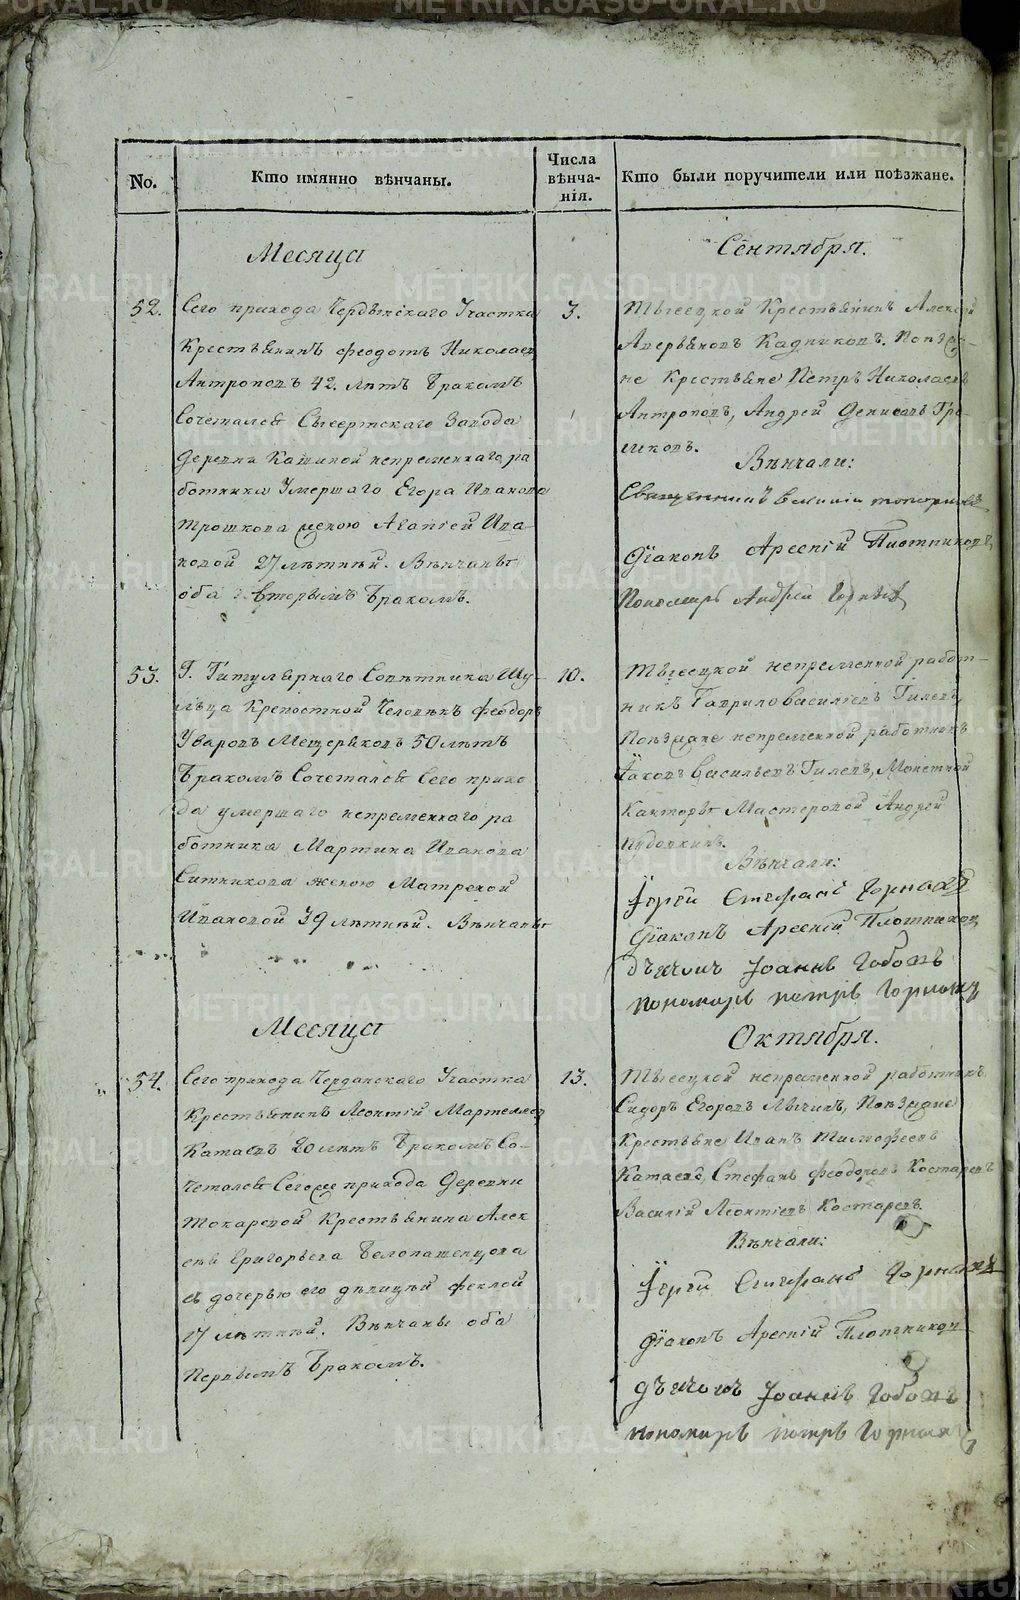 METRIKI.GASO-URAL.RU
No.
Кто имянно вѣнчаны.
Числа
вѣнча-
нія.
Кто были поручители или поѣзжане.
Месяца
Сентября.
52.
Сего прихода Участка
Крестьянинъ Феодотъ Николаевъ
Антроповъ 42. лѣтъ бракомъ
Сочетался Сысертскаго Завода
Деревни Кашиной непременнаго ра
ботника Умершаго Егора Иванова
Трошкова женою Агапіей Ива-
новой 27 лѣтней. Вѣнчаны
оба вторымъ бракомъ.
3.
Крестьянинъ Алексей
Аверьяновъ Кадниковъ. Поѣзжа-
не Крестьяне Петръ Николаевъ
Антроповъ, Андрей Денисовъ
Вѣнчали:
Священникъ
Діаконъ Арсеній Плотниковъ
Пономарь Андрей
53.
Г. Титулярнаго Советника Шу-
льца Крепостной Человѣкъ Феодоръ
Уваровъ Мещеряковъ 50 лѣтъ
бракомъ Сочетался Сего прихо
да умершаго непременнаго ра
ботника Мартина Иванова
Ситникова женою Матреной
Ивановой 39 лѣтней. Вѣнчаны
10.
непременной работ-
никъ Гаврило Васильевъ Гилевъ,
Поѣзжане непременной работникъ
Іаковъ Васильевъ Гилевъ, Монетной
Канторы Мастеровой Андрей
Вѣнчали:
Іерей Стефанъ Горныхъ
Діаконъ Арсеній Плотниковъ
Дьячокъ Іоаннъ
пономарь петръ Горныхъ
Месяца
Октября.
54.
Сего прихода Участка
Крестьянинъ Леонтій
Катаевъ 20 лѣтъ бракомъ Со-
четался Сегоже прихода Деревни
Токаревой Крестьянина Алек
сея Григорьева Белопашенцова
съ дочерью его дѣвицей Феклой
17 лѣтней. Вѣнчаны оба
первымъ бракомъ.
13.
непременной работникъ
Сидоръ Егоровъ Поѣзжане
Крестьяне Иванъ Тимофеевъ
Катаевъ, Стефанъ Феодоровъ Костаревъ
Василій Леонтіевъ Костаревъ.
Вѣнчали:
Іерей Стефанъ Горныхъ
Діаконъ Арсеній Плотниковъ
Дьячокъ Іоаннъ
пономарь петръ Горныхъ